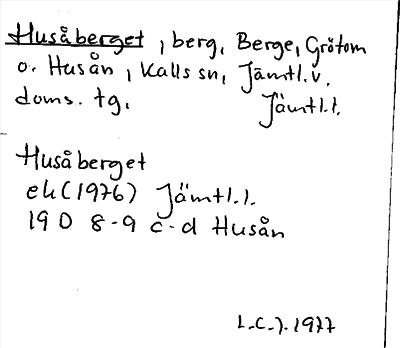 Husåberget, berg, Berge, Grötom
o. Husån, Kalls sn, Jämtl. v.
doms. tg, Jämtl. l.
Husåberget
ek (1976) Jämtl. l.
19 D 8-9 c-d Husån
L.C.J. 1977